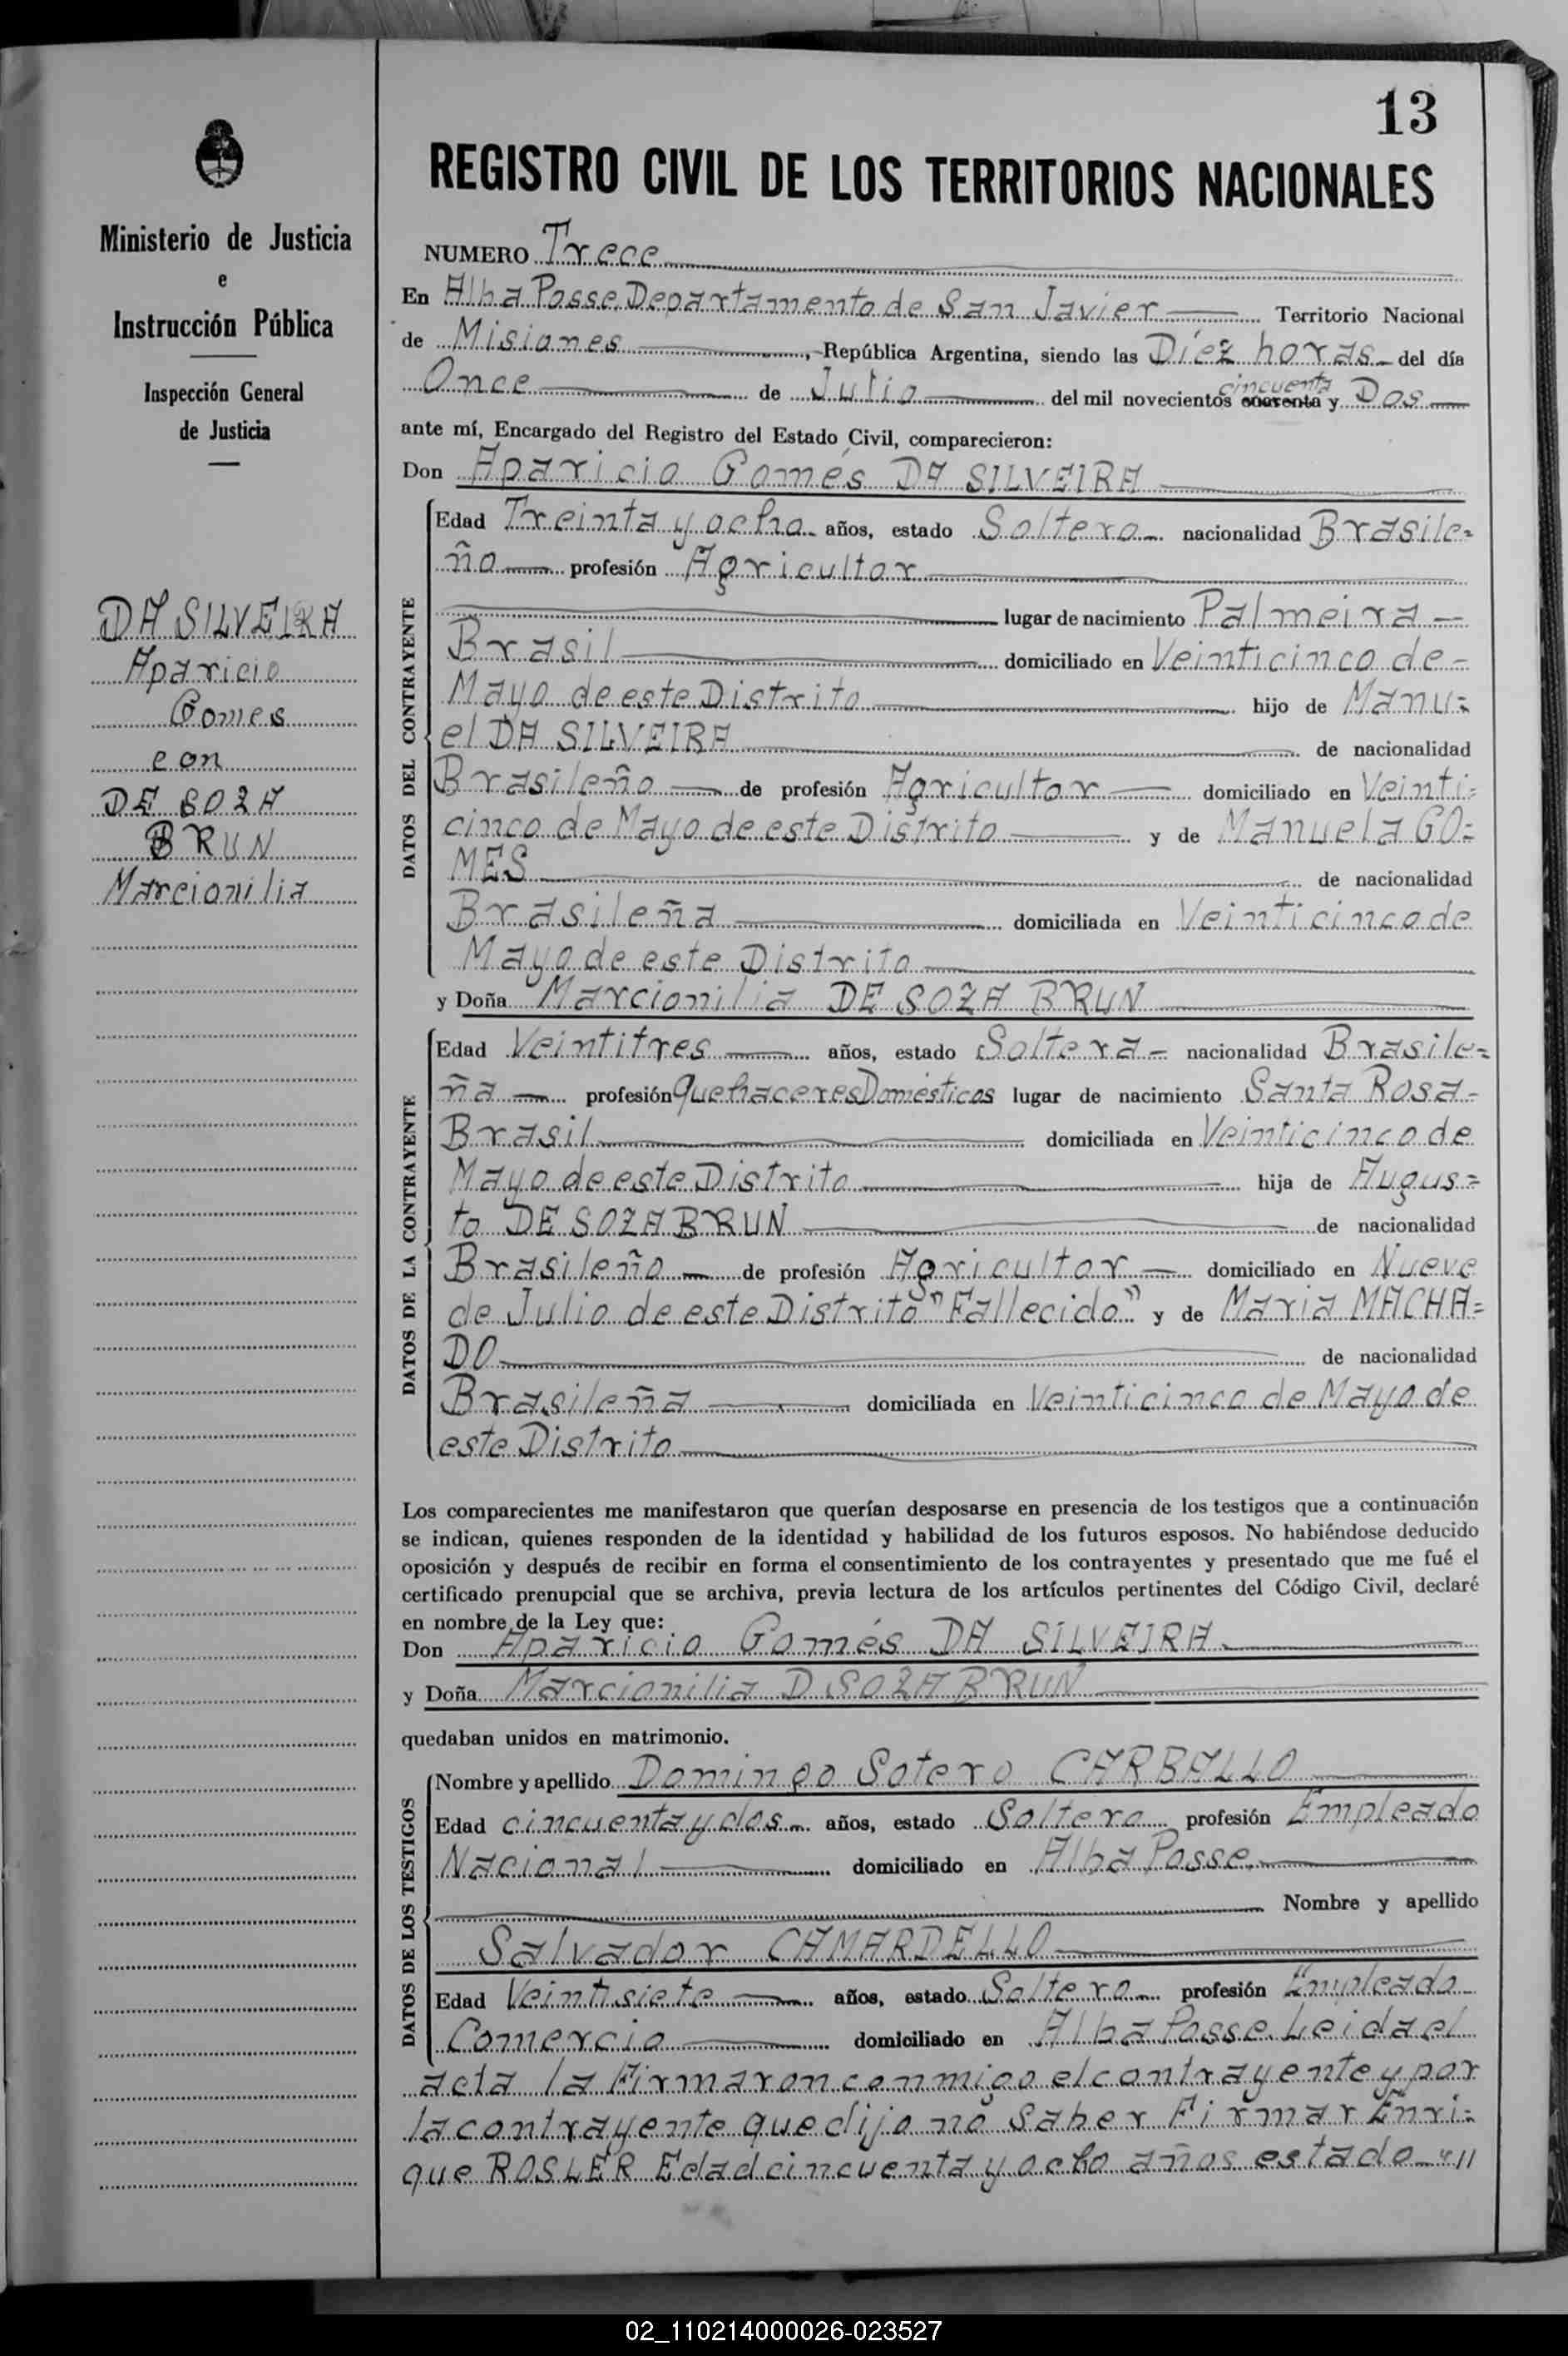 13
REGISTRO CIVIL DE LOS TERRITORIOS NACIONALES
Ministerio de Justicia
e
Instrucción Pública
Inspección General
de Justicia
DA SILVEIRA
Aparicio
Gomes
con
DE SOZA
BRUN
Marcionilia
NUMERO Trece
En Alba Posse, Departamento de San Javier Territorio Nacional
de Misiones, República Argentina, siendo las Diéz horas del día
Once de Julio del mil novecientos cincuenta y Dos
ante mí, Encargado del Registro del Estado Civil, comparecieron:
Don Aparicio Gomés DA SILVEIRA
DATOS DEL CONTRAYENTE
Edad Treinta y ocho años, estado Soltero nacionalidad Brasile=
ño profesión Agricultor
lugar de nacimiento Palmeira
Brasil domiciliado en Veinticinco de
Mayo de este Distrito hijo de Manu=
el DA SILVEIRA de nacionalidad
Brasileño de profesión Agricultor domiciliado en Veinti=
cinco de Mayo de este Distrito y de Manuela GO=
MES de nacionalidad
Brasileña domiciliada en Veinticinco de
Mayo de este Distrito
y Doña Marcionilia DE SOZA BRUN
DATOS DE LA CONTRAYENTE
Edad Veintitres años, estado Soltera nacionalidad Brasile=
ña profesión Quehaceres Domésticos lugar de nacimiento Santa Rosa
Brasil domiciliada en Veinticinco de
Mayo de este Distrito hija de Augus=
to DE SOZA BRUN de nacionalidad
Brasileño de profesión Agricultor domiciliado en Nueve
de Julio de este Distrito "Fallecido" y de Maria MACHA=
DO de nacionalidad
Brasileña domiciliada en Veinticinco de Mayo de
este Distrito
Los comparecientes me manifestaron que querían desposarse en presencia de los testigos que a continuación
se indican, quienes responden de la identidad y habilidad de los futuros esposos. No habiéndose deducido
oposición y después de recibir en forma el consentimiento de los contrayentes y presentado que me fué el
certificado prenupcial que se archiva, previa lectura de los artículos pertinentes del Código Civil, declaré
en nombre de la Ley que:
Don Aparicio Gomés DA SILVEIRA
y Doña Marcionilia D SOZA BRUN
quedaban unidos en matrimonio.
DATOS DE LOS TESTIGOS
Nombre y apellido Domingo Sotero CARBALLO
Edad cincuenta y dos años, estado Soltero profesión Empleado
Nacional domiciliado en Alba Posse
Nombre y apellido
Salvador CAMARDELLO
Edad Veintisiete años, estado Soltero profesión Empleado
Comercio domiciliado en Alba Posse. Leida el
acta la Firmaron conmigo el contrayente y por
la contrayente que dijo no saber Firmar Enri=
que ROSLER Edad cincuenta y ocho años estado "//
02_110214000026-023527